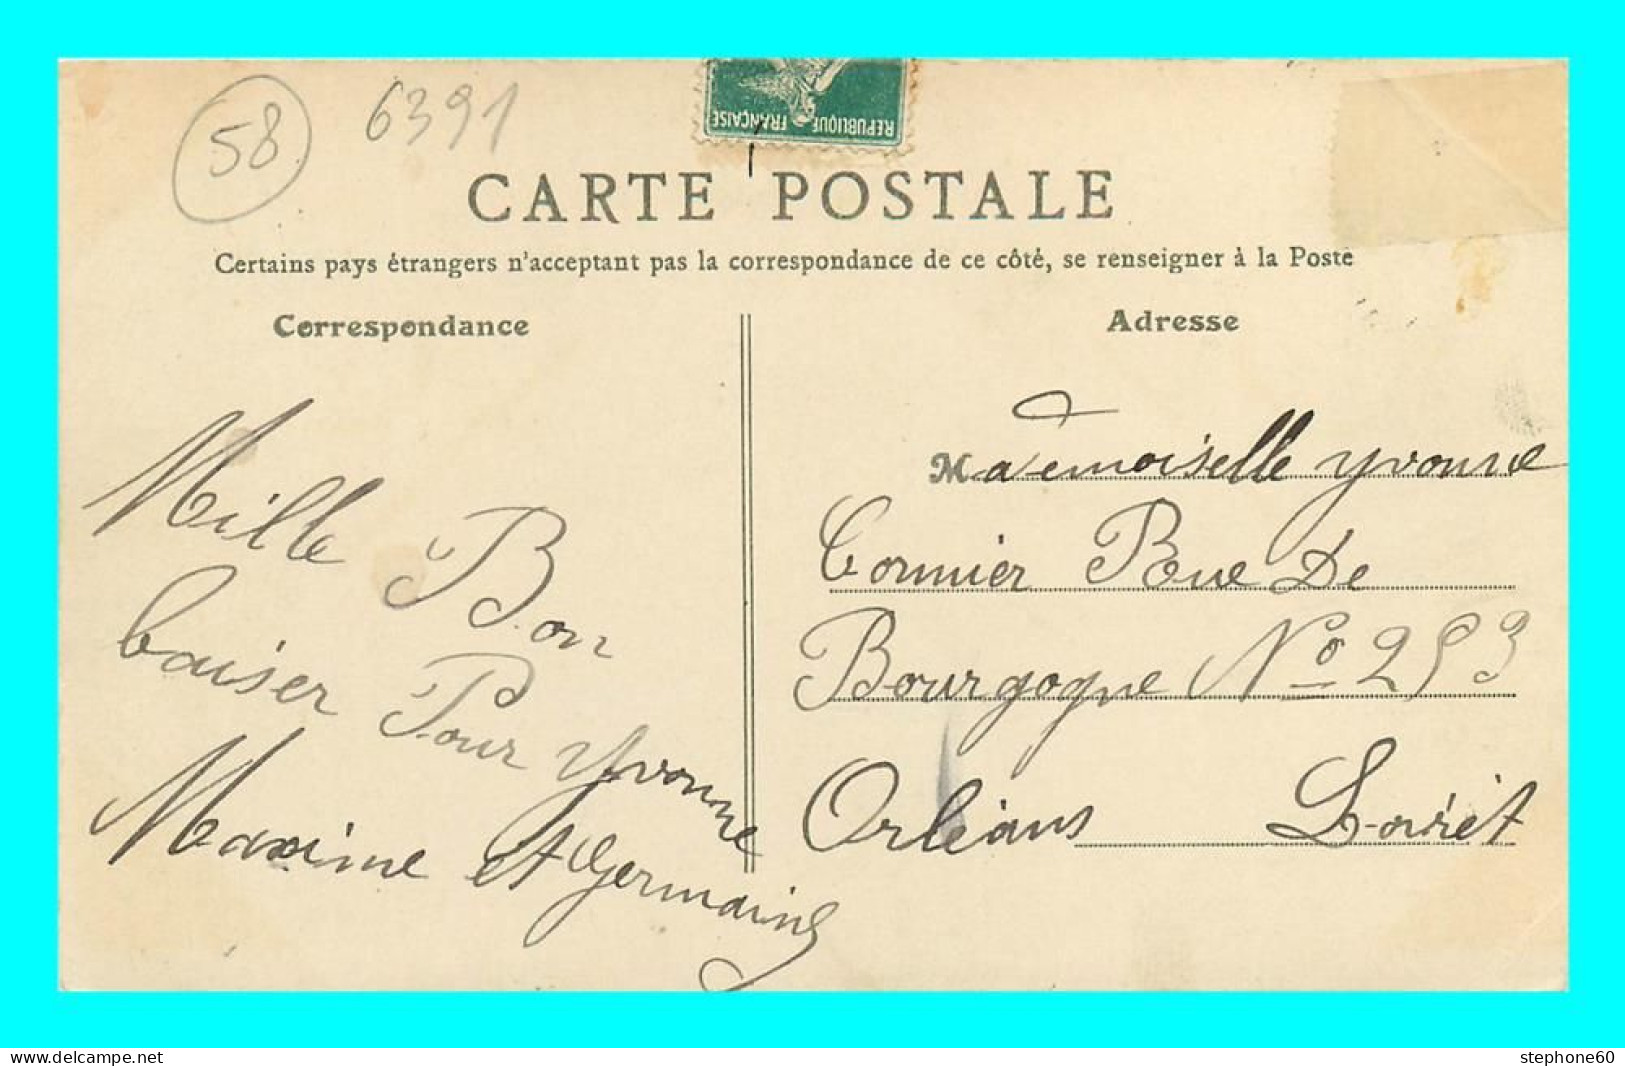 58
6391
REPUBLIQUE FRANÇAISE
CARTE POSTALE
Certains pays étrangers n'acceptant pas la correspondance de ce côté, se renseigner à la Poste
Correspondance
Mille Bon
baiser Pour Yvonne
Maxime et Germaine
Adresse
Mademoiselle Yvonne
Cormier Rue De
Bourgogne No 253
Orléans Loiret
delcampe.net
stephone60